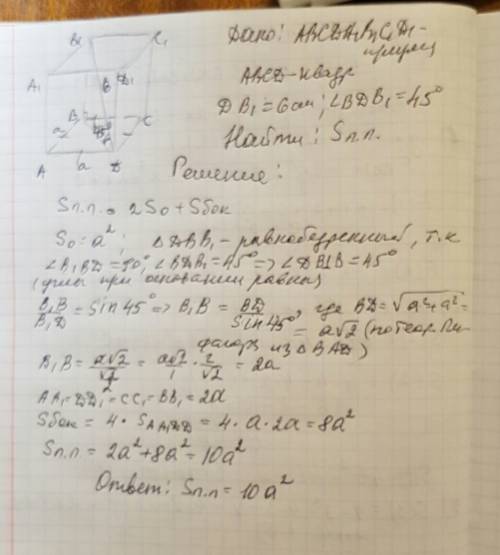 Дано: ABCDA₁B₁C₁D₁ - призма
ABCD - квадр
DB₁ = 6 см; ∠BDB₁ = 45°
Найти: Sп.п.
B₁ C₁
A₁ D₁
B C
a
A a D
Решение:
Sп.п. = 2S₀ + Sбок
S₀ = a²; △DBB₁ - равнобедренный, т.к
∠B₁BD = 90°, ∠BDB₁ = 45° => ∠DB₁B = 45°
(углы при основании равны)
B₁B/B₁D = sin 45° => B₁B = BD/sin 45°, где BD = √a²+a² =
= a√2 (по теор. Пи-
фагора из △BAD)
B₁B = a√2/(√2/2) = a√2/1 · 2/√2 = 2a
AA₁ = DD₁ = CC₁ = BB₁ = 2a
Sбок = 4 · SAA₁D₁D = 4 · a · 2a = 8a²
Sп.п = 2a² + 8a² = 10a²
Ответ: Sп.п = 10a²